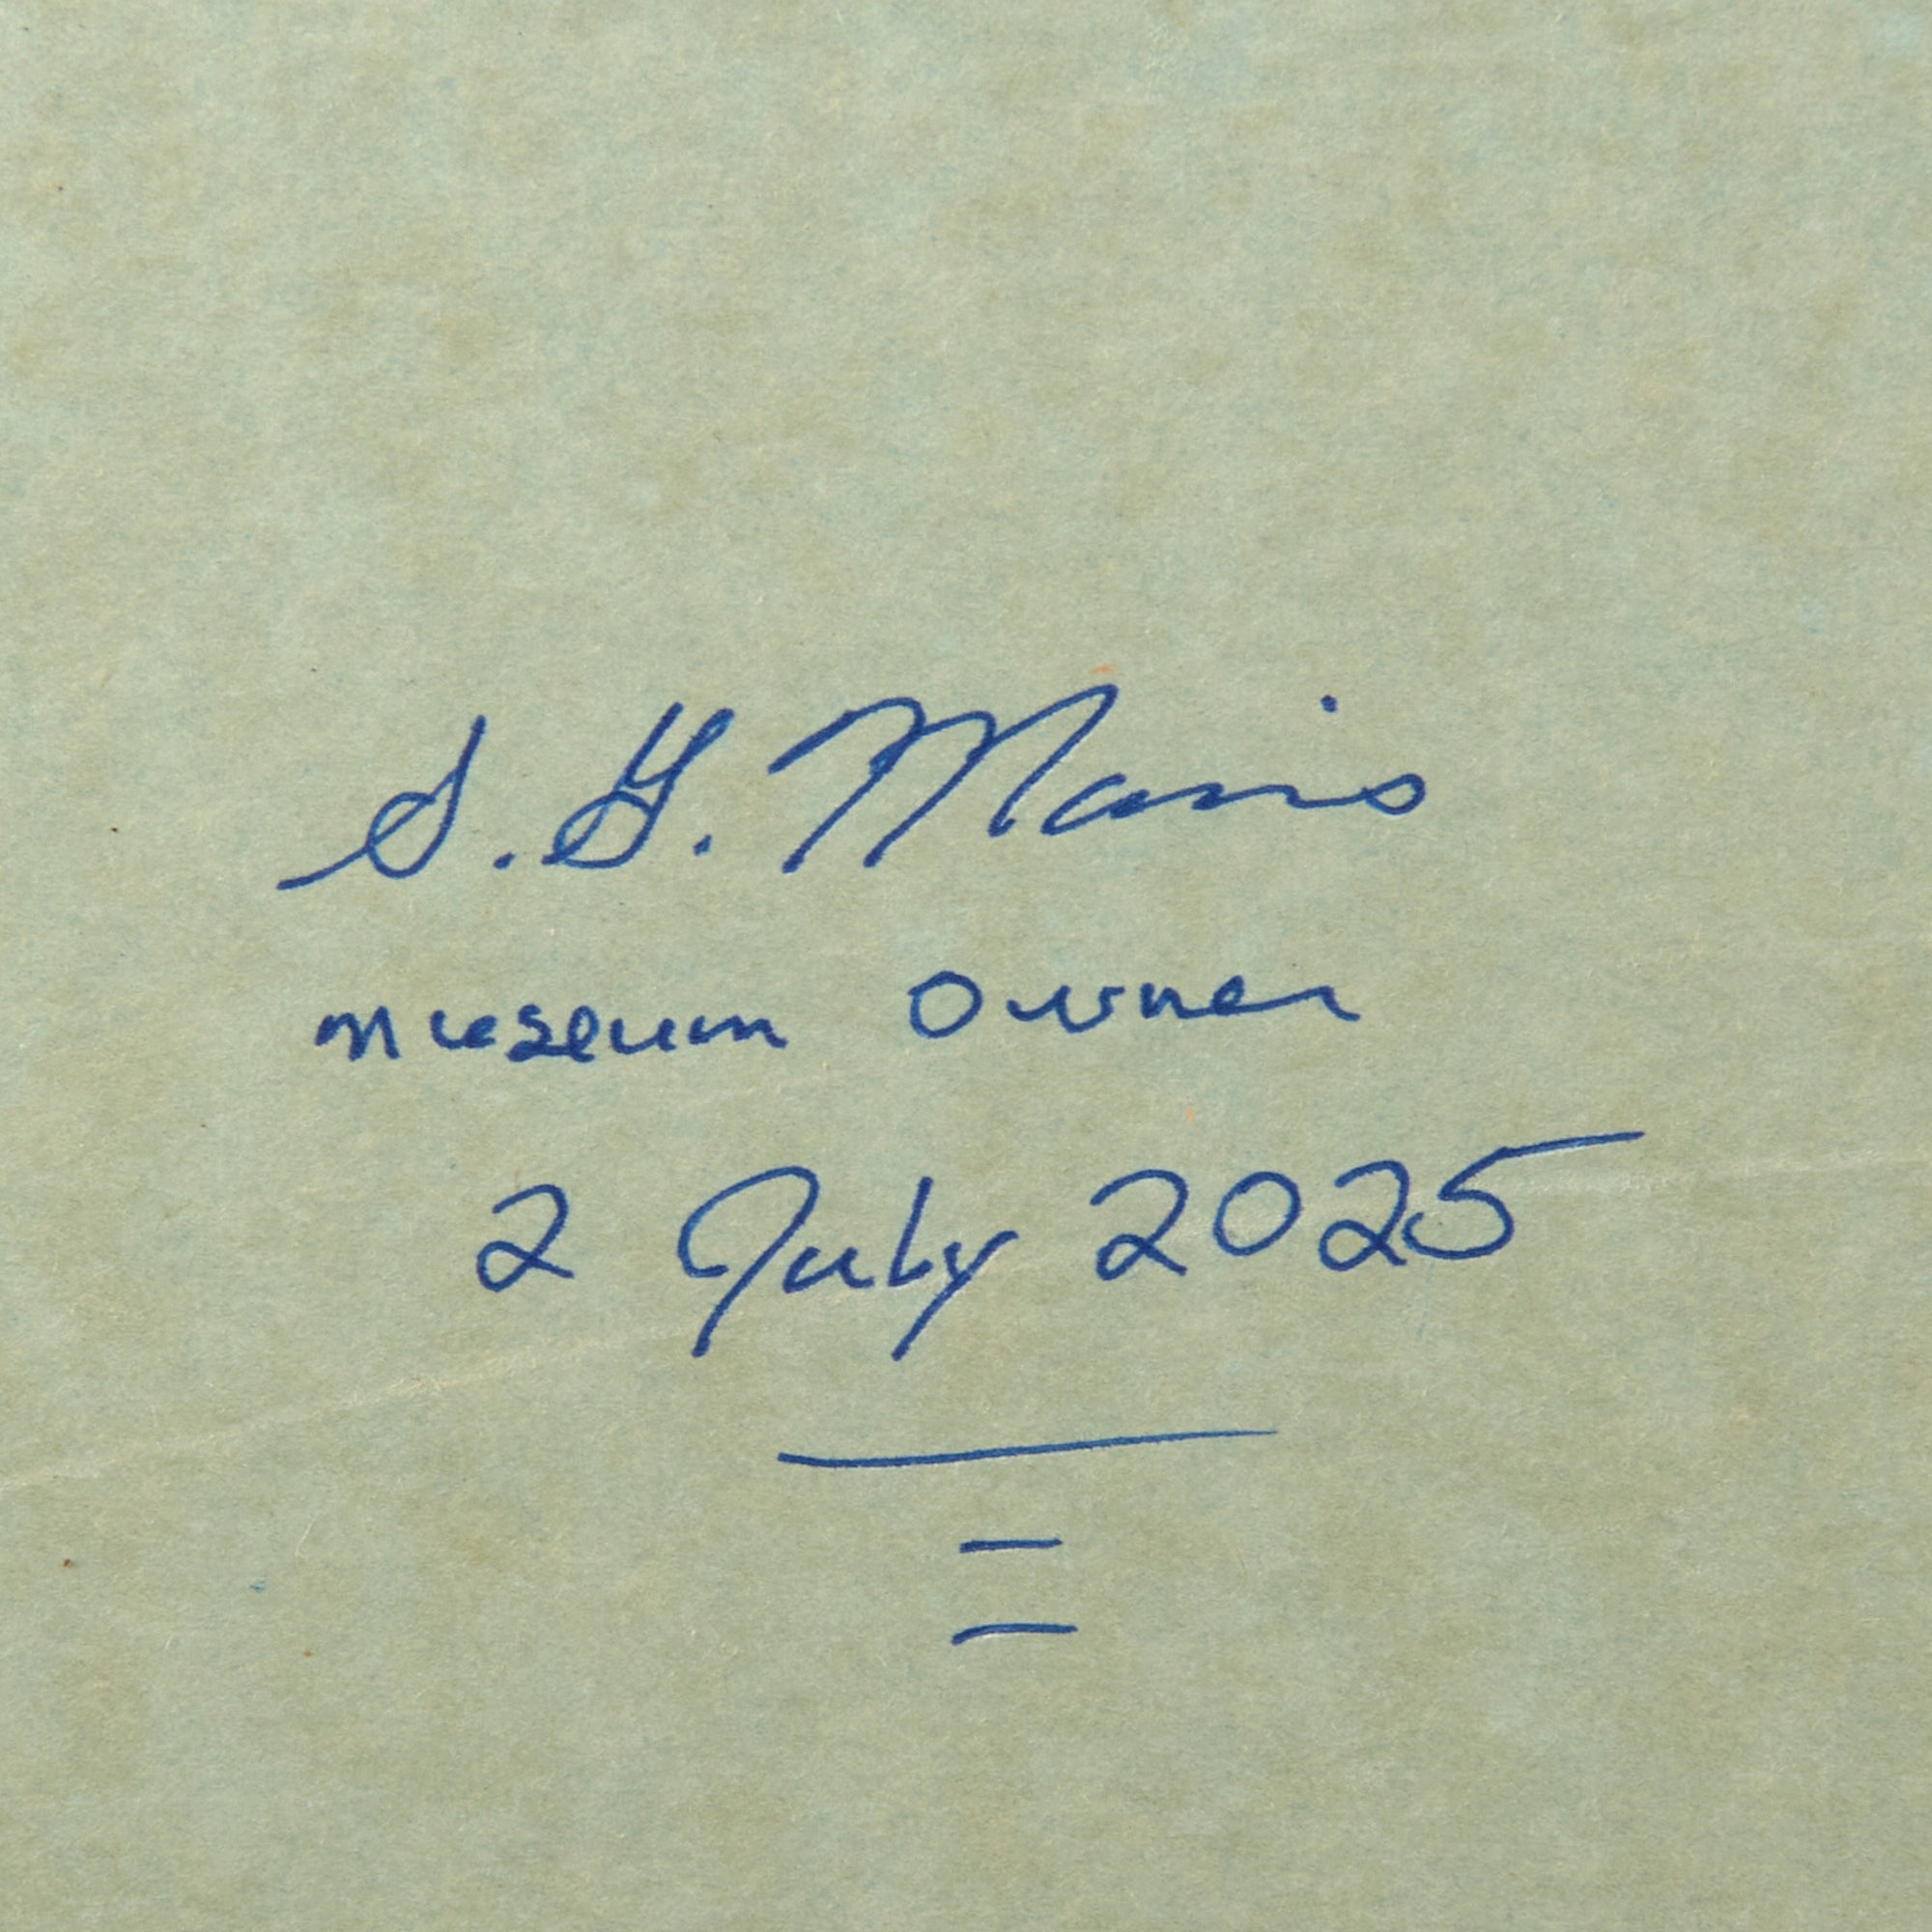 S. G. Marris
Museum Owner
2 July 2025